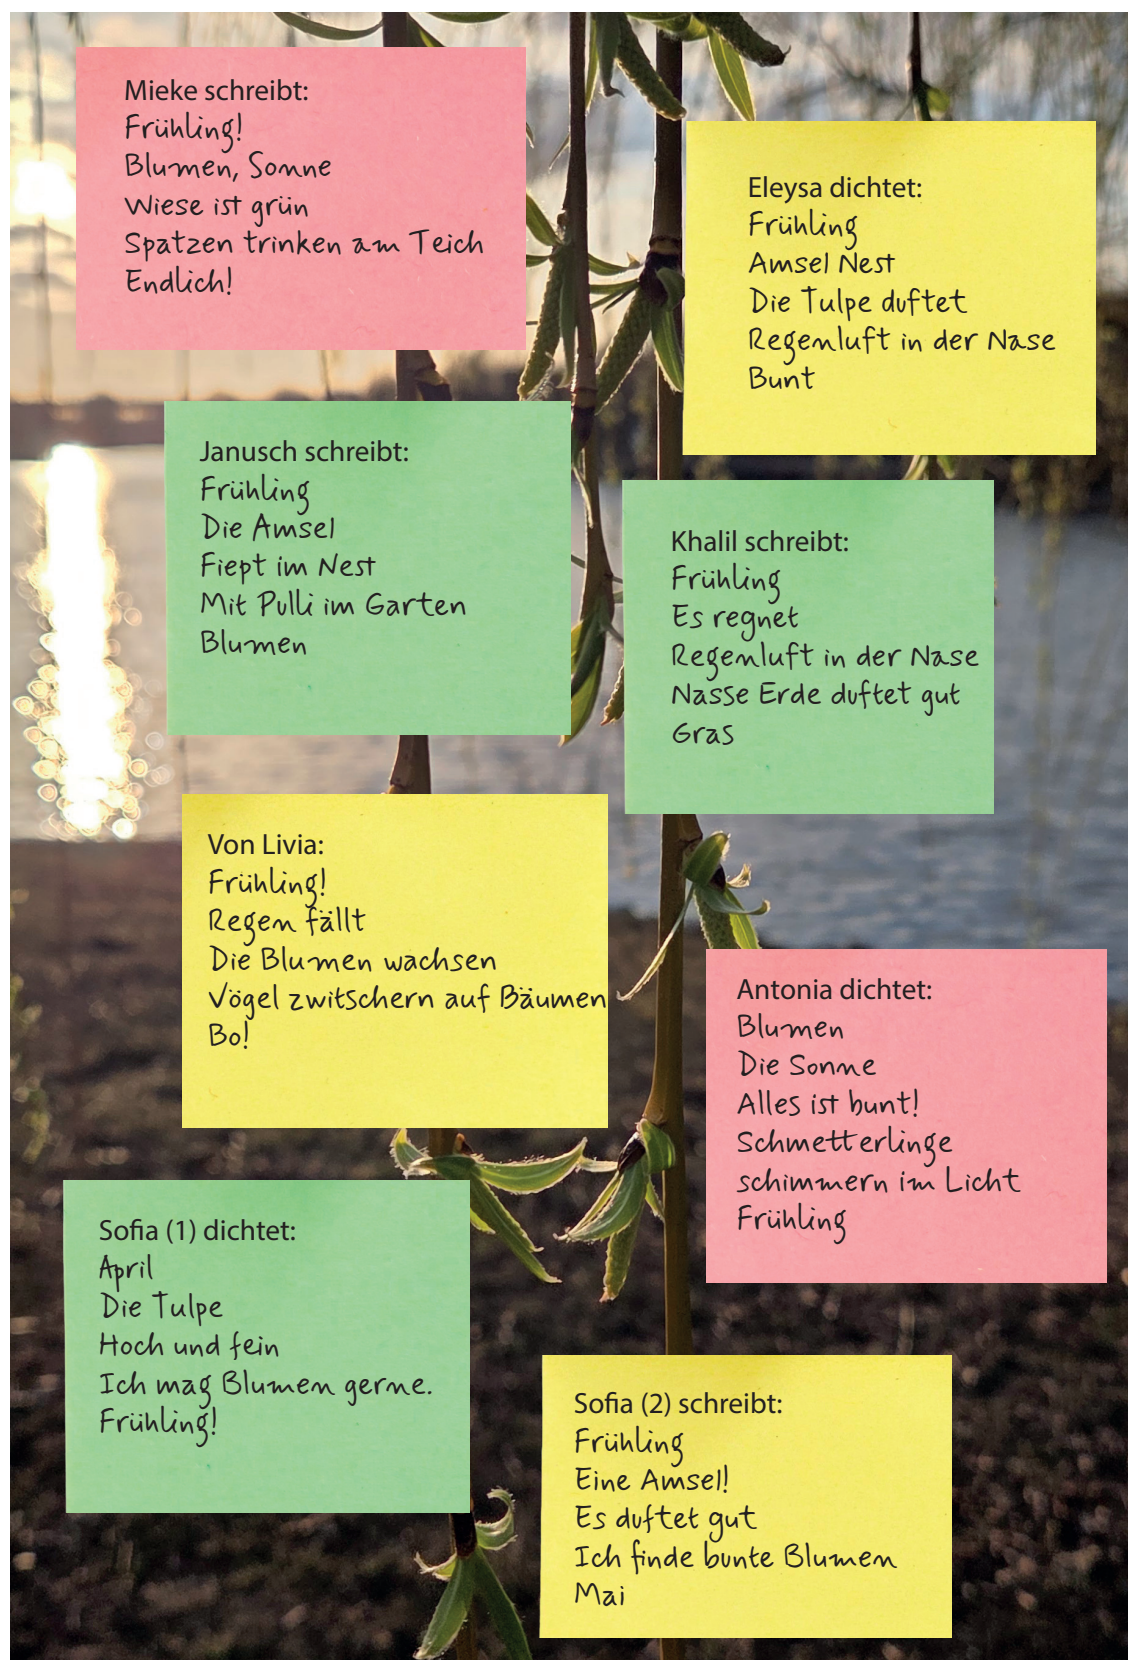 Mieke schreibt:
Frühling!
Blumen, Sonne
Wiese ist grün
Spatzen trinken am Teich
Endlich!
Eleysa dichtet:
Frühling
Amsel Nest
Die Tulpe duftet
Regenluft in der Nase
Bunt
Janusch schreibt:
Frühling
Die Amsel
Fiept im Nest
Mit Pulli im Garten
Blumen
Khalil schreibt:
Frühling
Es regnet
Regenluft in der Nase
Nasse Erde duftet gut
Gras
Von Livia:
Frühling!
Regen fällt
Die Blumen wachsen
Vögel zwitschern auf Bäumen
Bo!
Antonia dichtet:
Blumen
Die Sonne
Alles ist bunt!
Schmetterlinge
schimmern im Licht
Frühling
Sofia (1) dichtet:
April
Die Tulpe
Hoch und fein
Ich mag Blumen gerne.
Frühling!
Sofia (2) schreibt:
Frühling
Eine Amsel!
Es duftet gut
Ich finde bunte Blumen
Mai